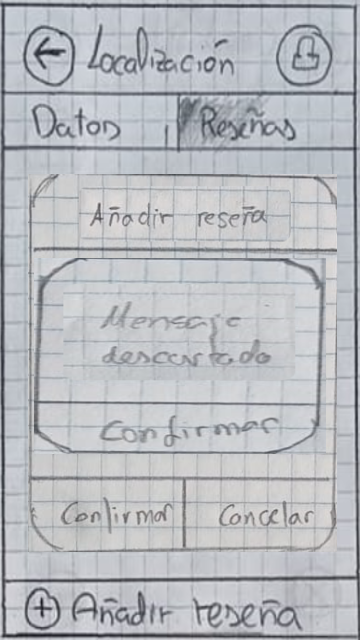 Localización
Datos Reseñas
Añadir reseña
Mensaje
descartado
Confirmar
Confirmar Cancelar
Añadir reseña